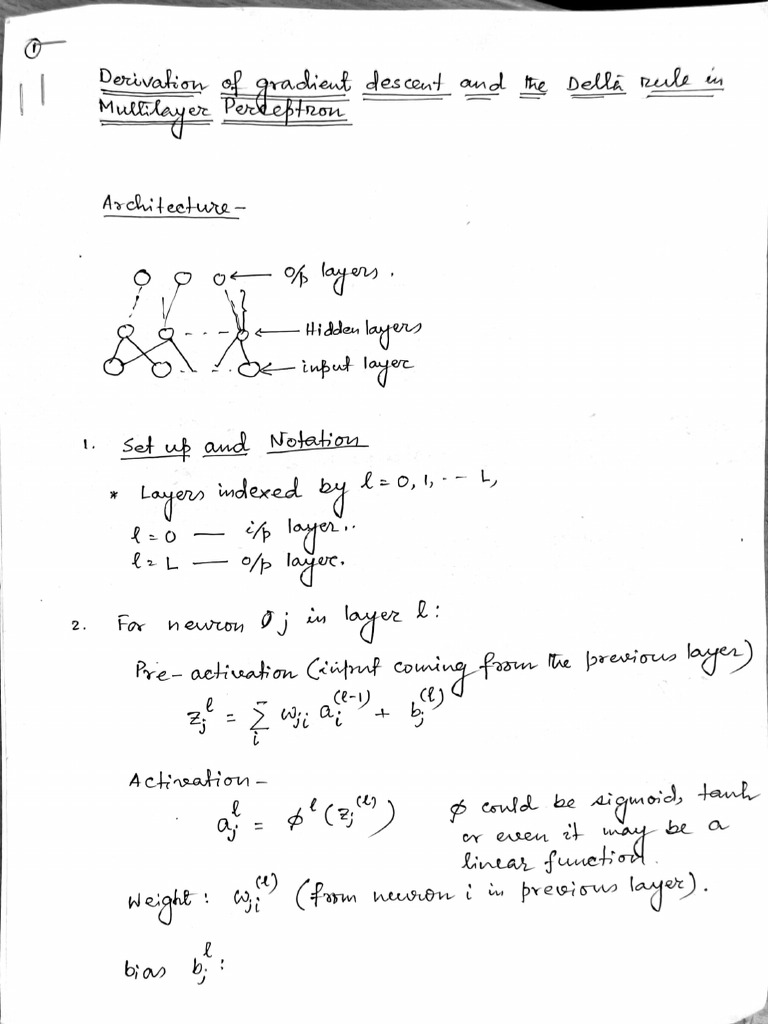 ①
Derivation of gradient descent and the Delta rule in
Multilayer Perceptron
Architecture -
o/p layers.
Hidden layers
input layer
1. Set up and Notation
* Layers indexed by l = 0, 1, -- L,
l = 0 — i/p layer..
l = L — o/p layer.
2. For neuron j in layer l:
Pre-activation (input coming from the previous layer)
z_j^l = Σ_i w_ji a_i^(l-1) + b_j^(l)
Activation -
a_j^l = φ^l (z_j^(l))
φ could be sigmoid, tanh
or even it may be a
linear function.
Weight: w_ji^(l) (from neuron i in previous layer).
bias b_j^l: